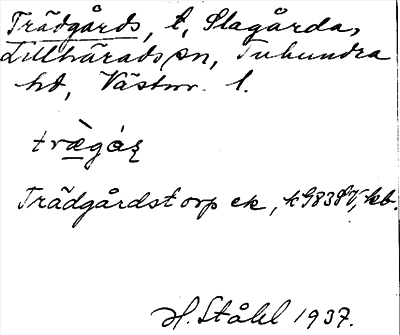 Trädgårds, t, Slagårda,
Lillhärads sn, Tuhundra
hd, Västm. l.
træ̀gáʂ
Trädgårdstorp ek, k 9838 V, kb.
H. Ståhl 1937.